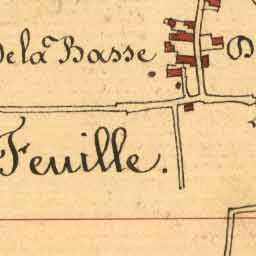 De la Basse D
Feuille.